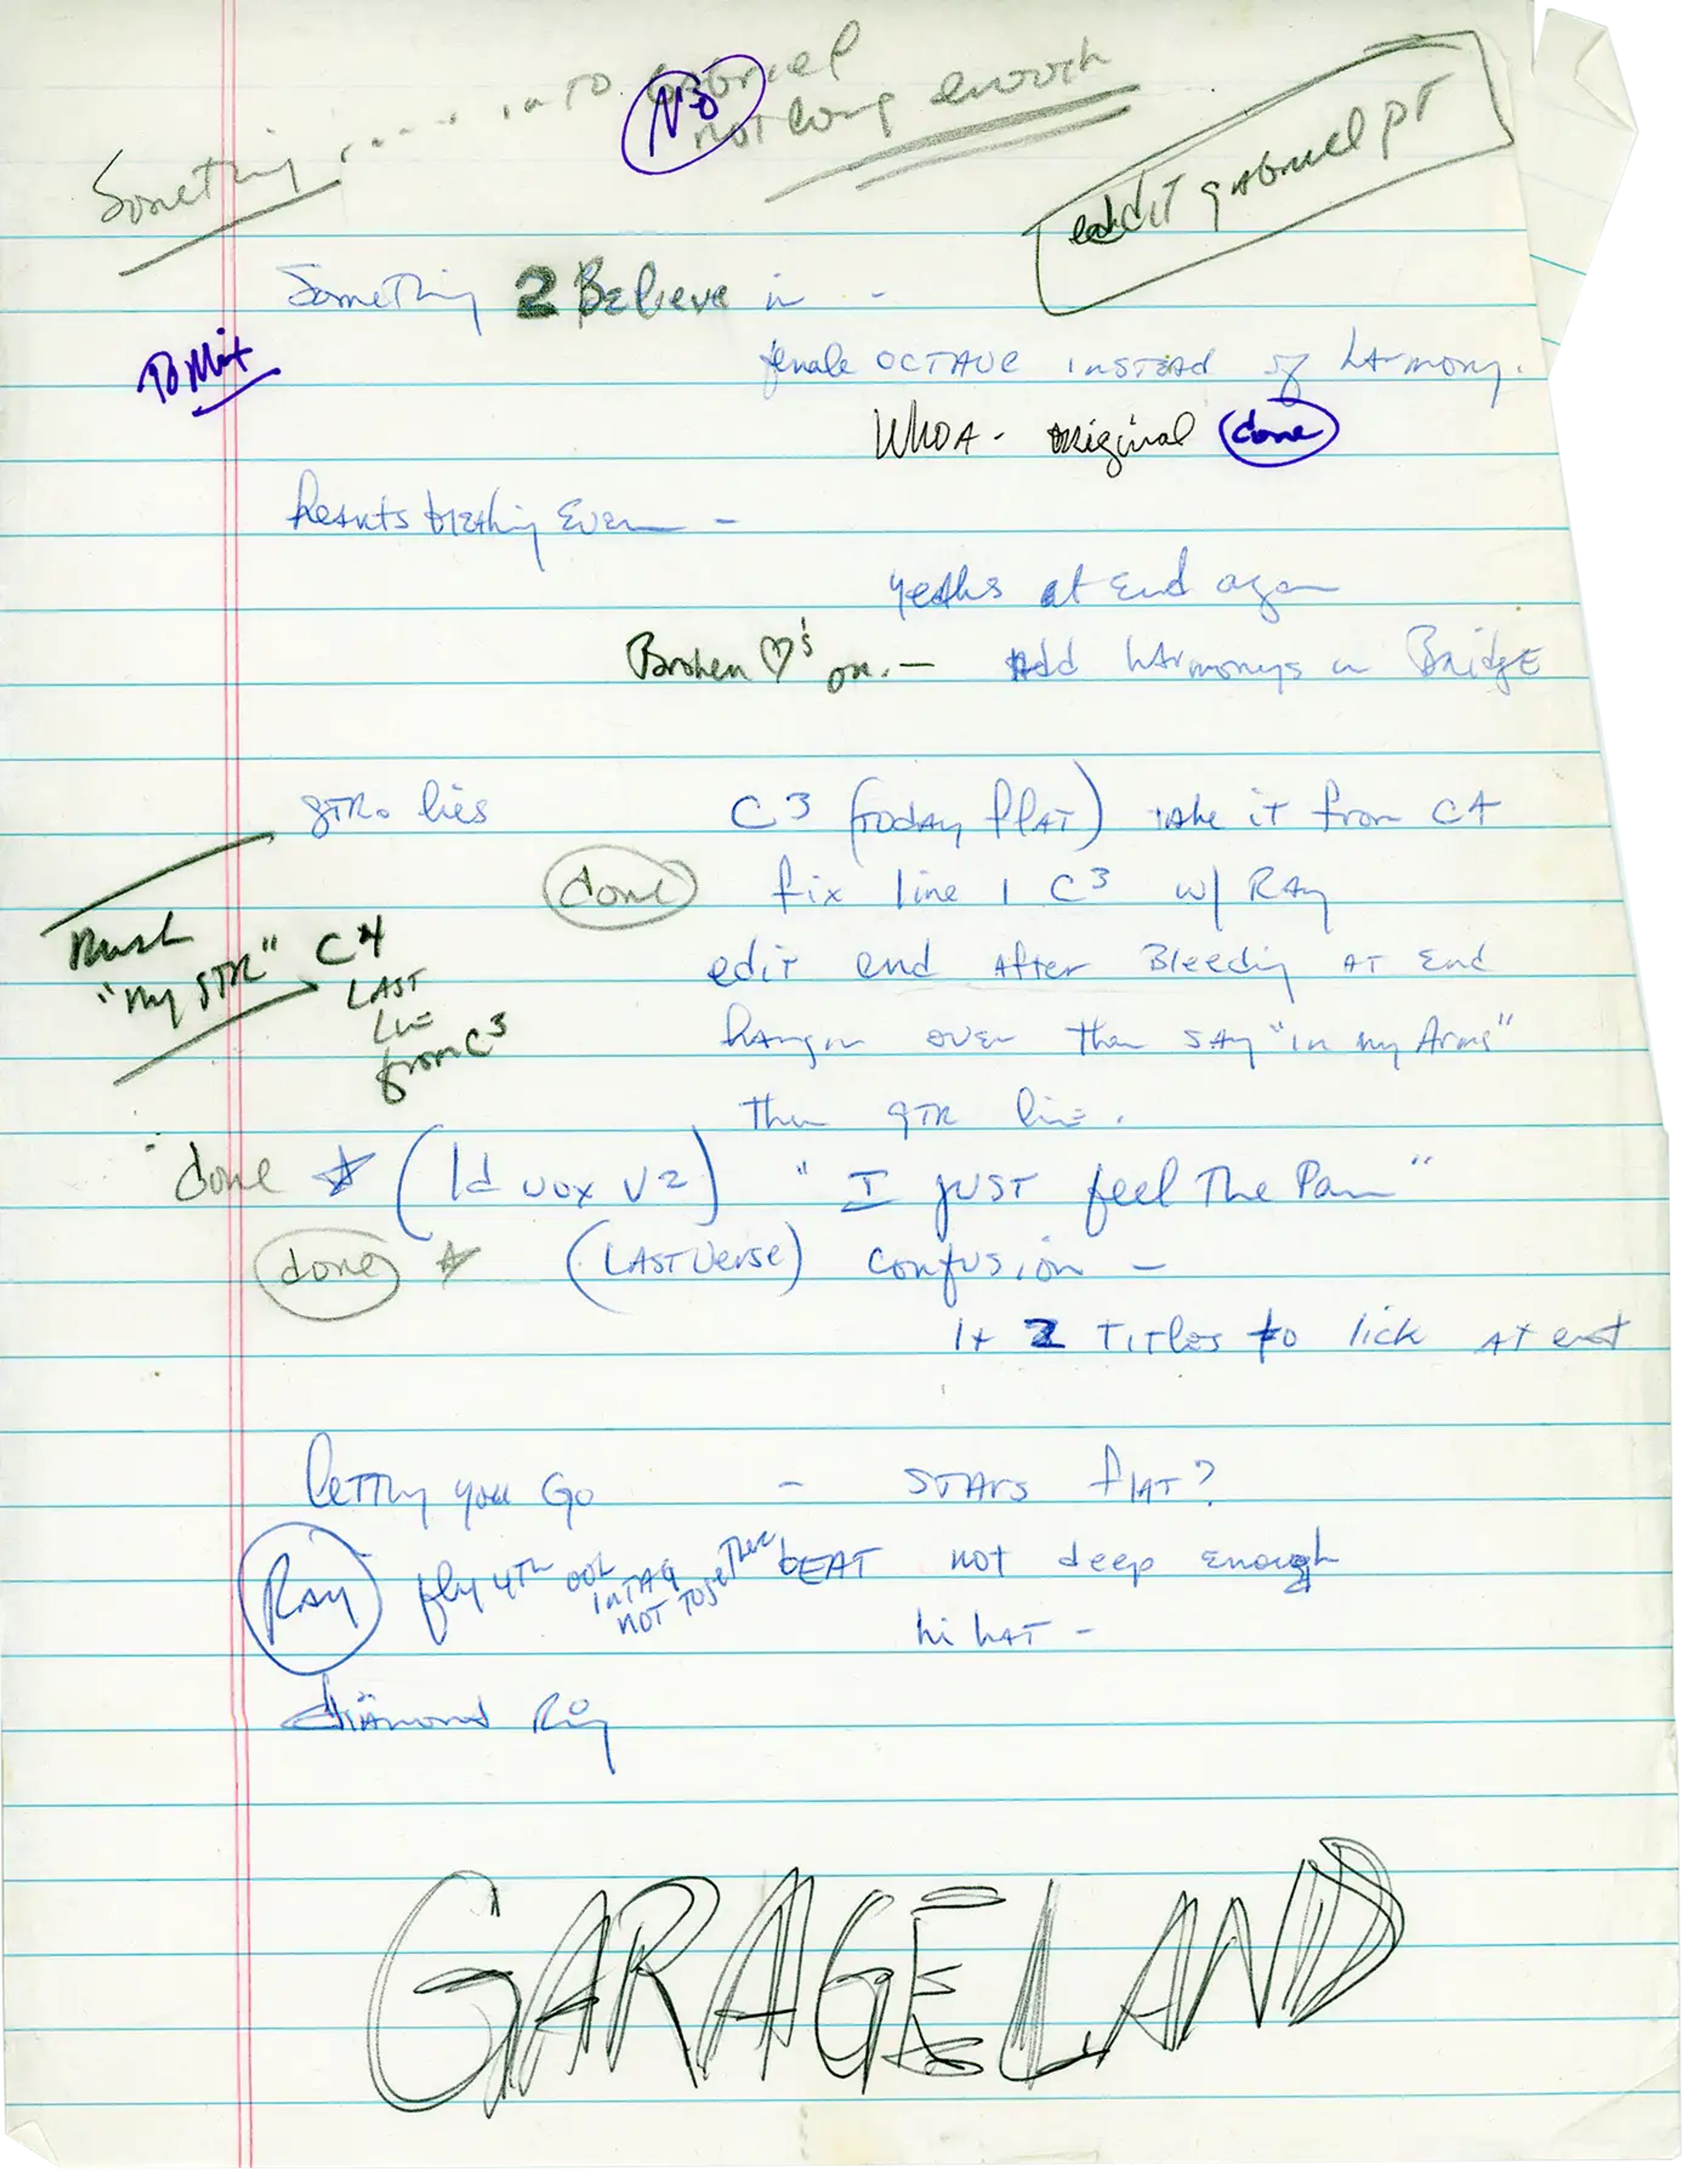 Something .... into Gabriel
NO
not long enough
edit gabriel pt
Something 2 Believe in -
To Mix
female OCTAVE INSTEAD of harmony.
WHOA - original done
Hearts breaking Even -
yeahs at End again
Broken ♡'s on. — Add harmonys in Bridge
GTR. lies C3 (today flat) take it from C4
done fix line 1 C3 w/ RAY
"My GTR" C4
LAST
Line
from C3
edit end After Bleeding AT End
hangin over then SAY "in my Arms"
Then GTR line.
done ☆ (ld vox V2) "I just feel The Pain"
done ☆ (LAST Verse) Confusion -
1+ 2 Titles to lick At end
letting you Go - STARS flAT?
RAY fly 4th ooh
in TAG
NOT Together There
bEAT not deep enough
hi hAT -
diamond Ring
GARAGELAND